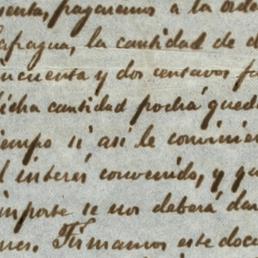 senta, pagaremos a la orde
Lafragua, la cantidad de d
incuenta y dos centavos fu
dicha cantidad podrá qued
iempo si asi le convinie
l interes convenido, y qu
importe se nos deberá dar
nes. Firmamos este docu